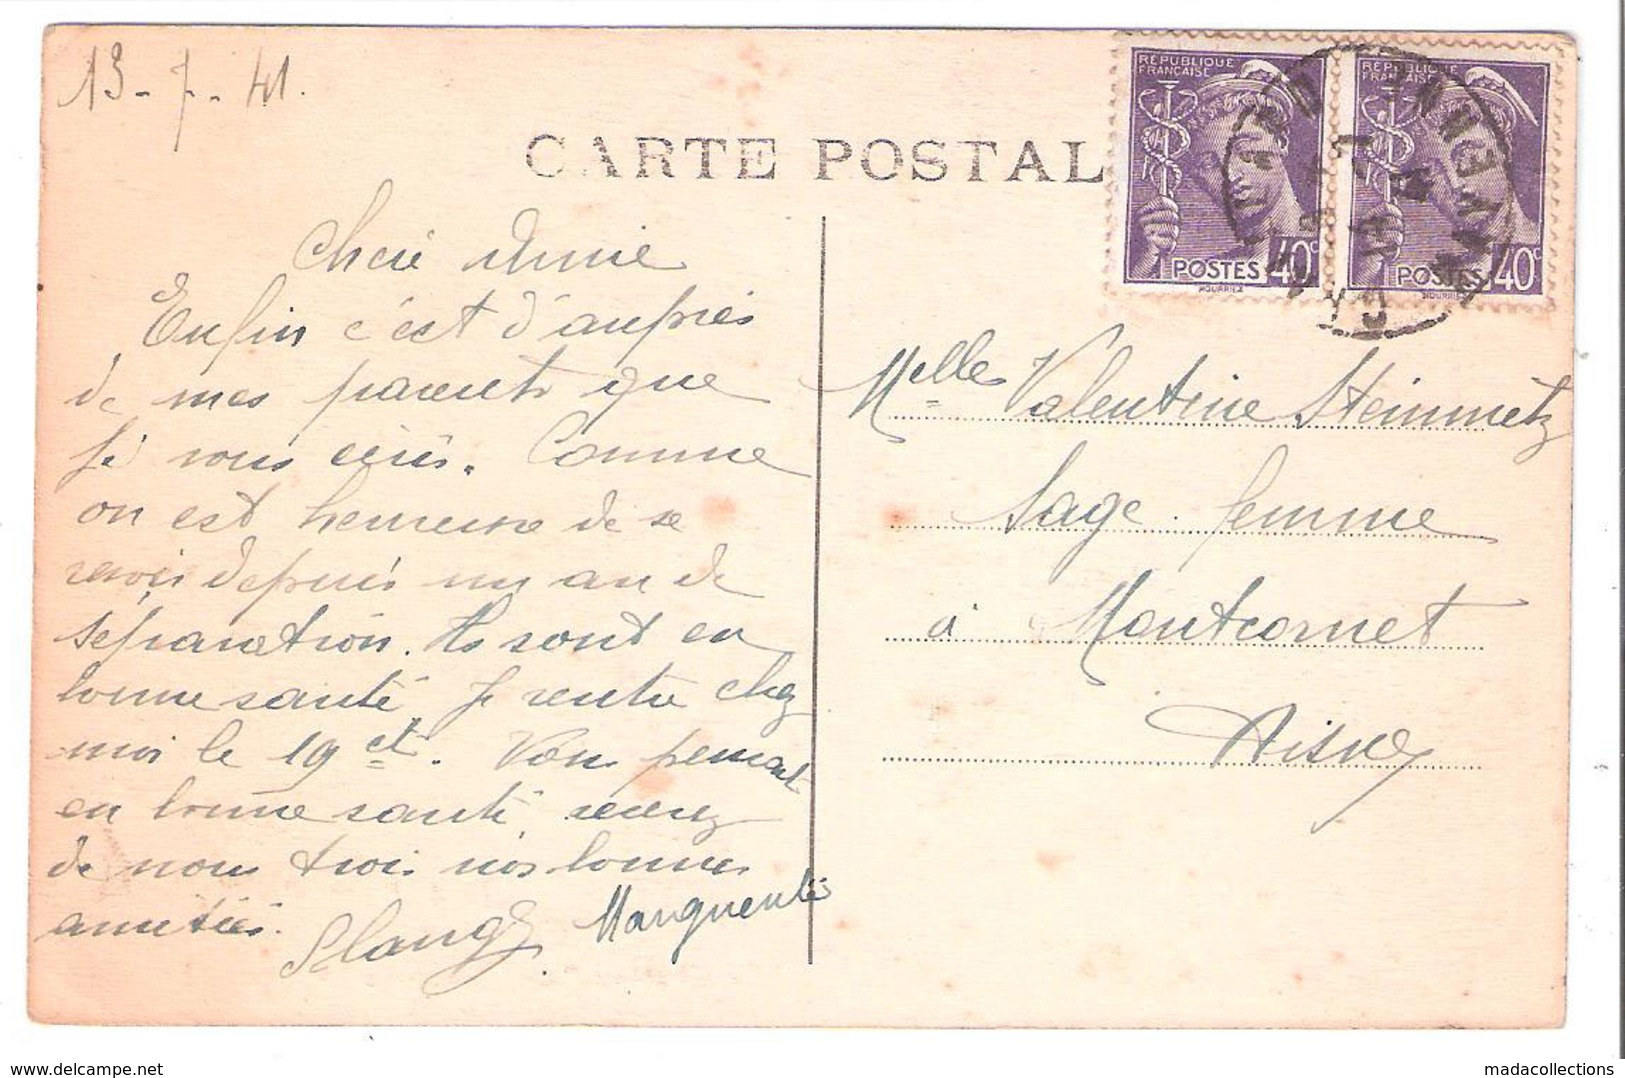 13-7-41.
CARTE POSTAL
RÉPUBLIQUE
FRANÇAISE
POSTES 40c
RÉPUBLIQUE
FRANÇAISE
POSTES 40c
Enfin c'est d'auprès
de mes parents que
je vous écris. Comme
on est heureuse de se
revoir depuis un an de
séparation. Ils sont en
bonne santé. Je rentre chez
moi le 19 ct. Vous pensant
en bonne santé, recevez
de nous trois nos bonnes
amitiés.
Marguerite
Melle Valentine Steinmetz
Sage-femme
à Montcornet
Aisne
Delcampe.net
madacollections